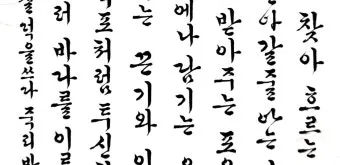 찾아 흐르는
아갈줄 아는
받아주는 포
에나 담기는
는 끈기와 인
포처럼 투신
러 바다를 이루
을쓰다 죽리